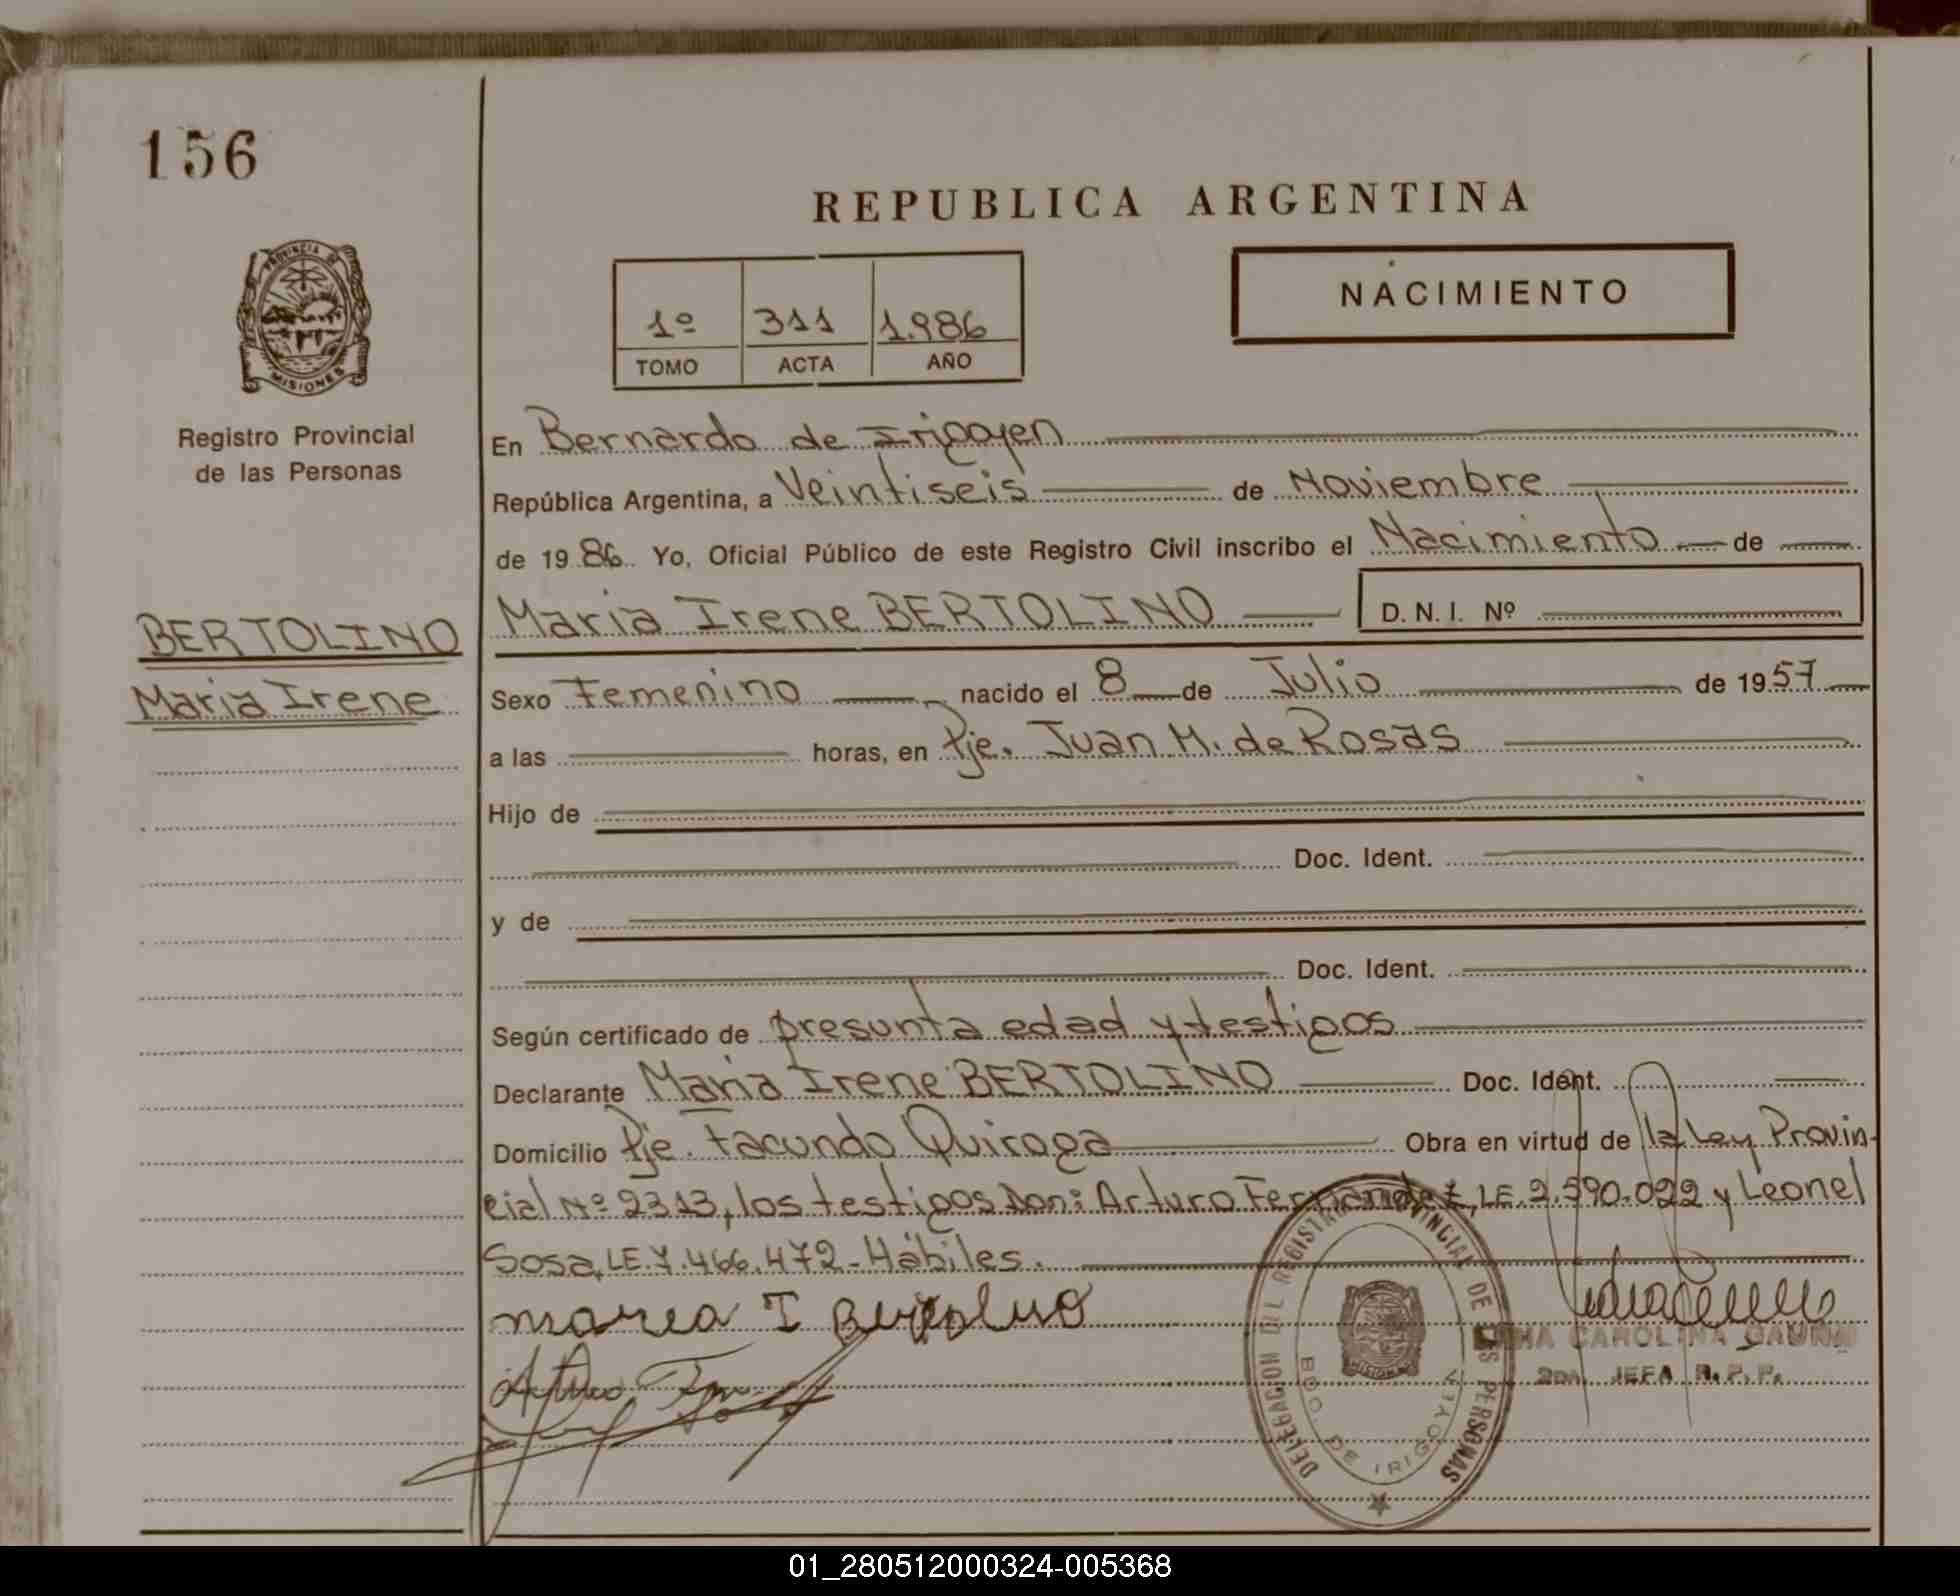 156
REPUBLICA ARGENTINA
PROVINCIA DE
MISIONES
Registro Provincial
de las Personas
1º 311 1.986
TOMO ACTA AÑO
NACIMIENTO
En Bernardo de Irigoyen
República Argentina, a Veintiseis de Noviembre
de 19 86. Yo, Oficial Público de este Registro Civil inscribo el Nacimiento de
BERTOLINO
Maria Irene
Maria Irene BERTOLINO D. N. I. Nº
Sexo Femenino nacido el 8 de Julio de 19 57
a las horas, en Pje. Juan M. de Rosas
Hijo de
Doc. Ident.
y de
Doc. Ident.
Según certificado de presunta edad y testigos
Declarante Maria Irene BERTOLINO Doc. Ident.
Domicilio Pje. Facundo Quiroga Obra en virtud de la Ley Provin-
cial Nº 2313, los testigos Don: Arturo Fernandez, LE. 2.590.022 y Leonel
Sosa, LE.7.466.472-Hábiles.
maria I Bertolino
Arturo
DELEGACION DEL REGISTRO PROVINCIAL DE LAS PERSONAS
BDO. DE IRIGOYEN
MISIONES
CAROLINA GAUNA
2DA. JEFA R. P. P.
01_280512000324-005368